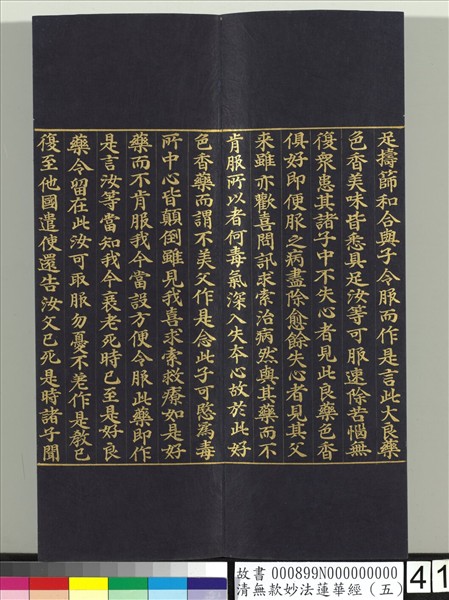 足擣篩和合與子令服而作是言此大良藥
色香美味皆悉具足汝等可服速除苦惱無
復衆患其諸子中不失心者見此良藥色香
俱好即便服之病盡除愈餘失心者見其父
來雖亦歡喜問訊求索治病然與其藥而不
肯服所以者何毒氣深入失本心故於此好
色香藥而謂不美父作是念此子可愍爲毒
所中心皆顛倒雖見我喜求索救療如是好
藥而不肯服我今當設方便令服此藥即作
是言汝等當知我今衰老死時已至是好良
藥今留在此汝可取服勿憂不差作是教已
復至他國遣使還告汝父已死是時諸子聞
故書 000899N000000000
清無款妙法蓮華經（五）
41